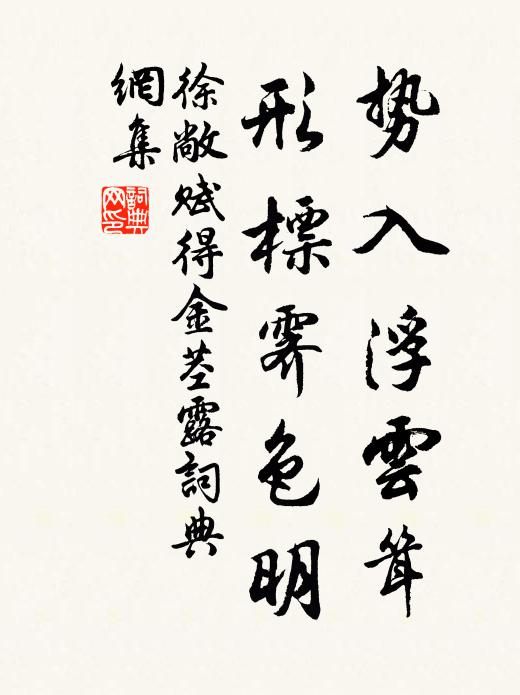 势入浮雲耸
形標霽色明
徐敞賦得金茎露詞典
網集
詞典
网印